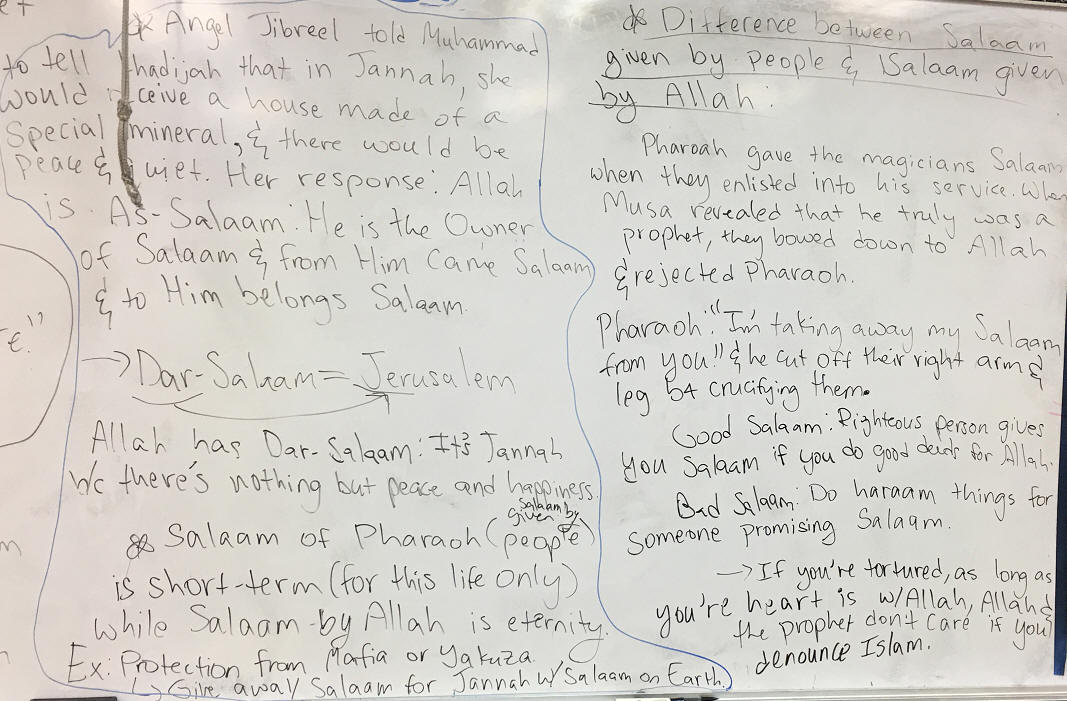 et
* Angel Jibreel told Muhammad
to tell hadijah that in Jannah, she
would ceive a house made of a
special mineral, & there would be
peace & quiet. Her response: Allah
is As-Salaam: He is the Owner
of Salaam & from Him came Salaam
& to Him belongs Salaam.
→ Dar-Salaam = Jerusalem
Allah has Dar-Salaam: It's Jannah
b/c there's nothing but peace and happiness.
* Salaam of Pharaoh (Salaam given by people)
is short-term (for this life only)
while Salaam by Allah is eternity.
Ex: Protection from Mafia or Yakuza.
↳ Give away Salaam for Jannah w/ Salaam on Earth.
* Difference between Salaam
given by people & Salaam given
by Allah:
Pharoah gave the magicians Salaam
when they enlisted into his service. When
Musa revealed that he truly was a
prophet, they bowed down to Allah
& rejected Pharaoh.
Pharaoh: "I'm taking away my Salaam
from you!" & he cut off their right arm &
leg b4 crucifying them.
Good Salaam: Righteous person gives
you Salaam if you do good deeds for Allah.
Bad Salaam: Do haraam things for
someone promising Salaam.
→ If you're tortured, as long as
you're heart is w/ Allah, Allah &
the prophet don't care if you
denounce Islam.